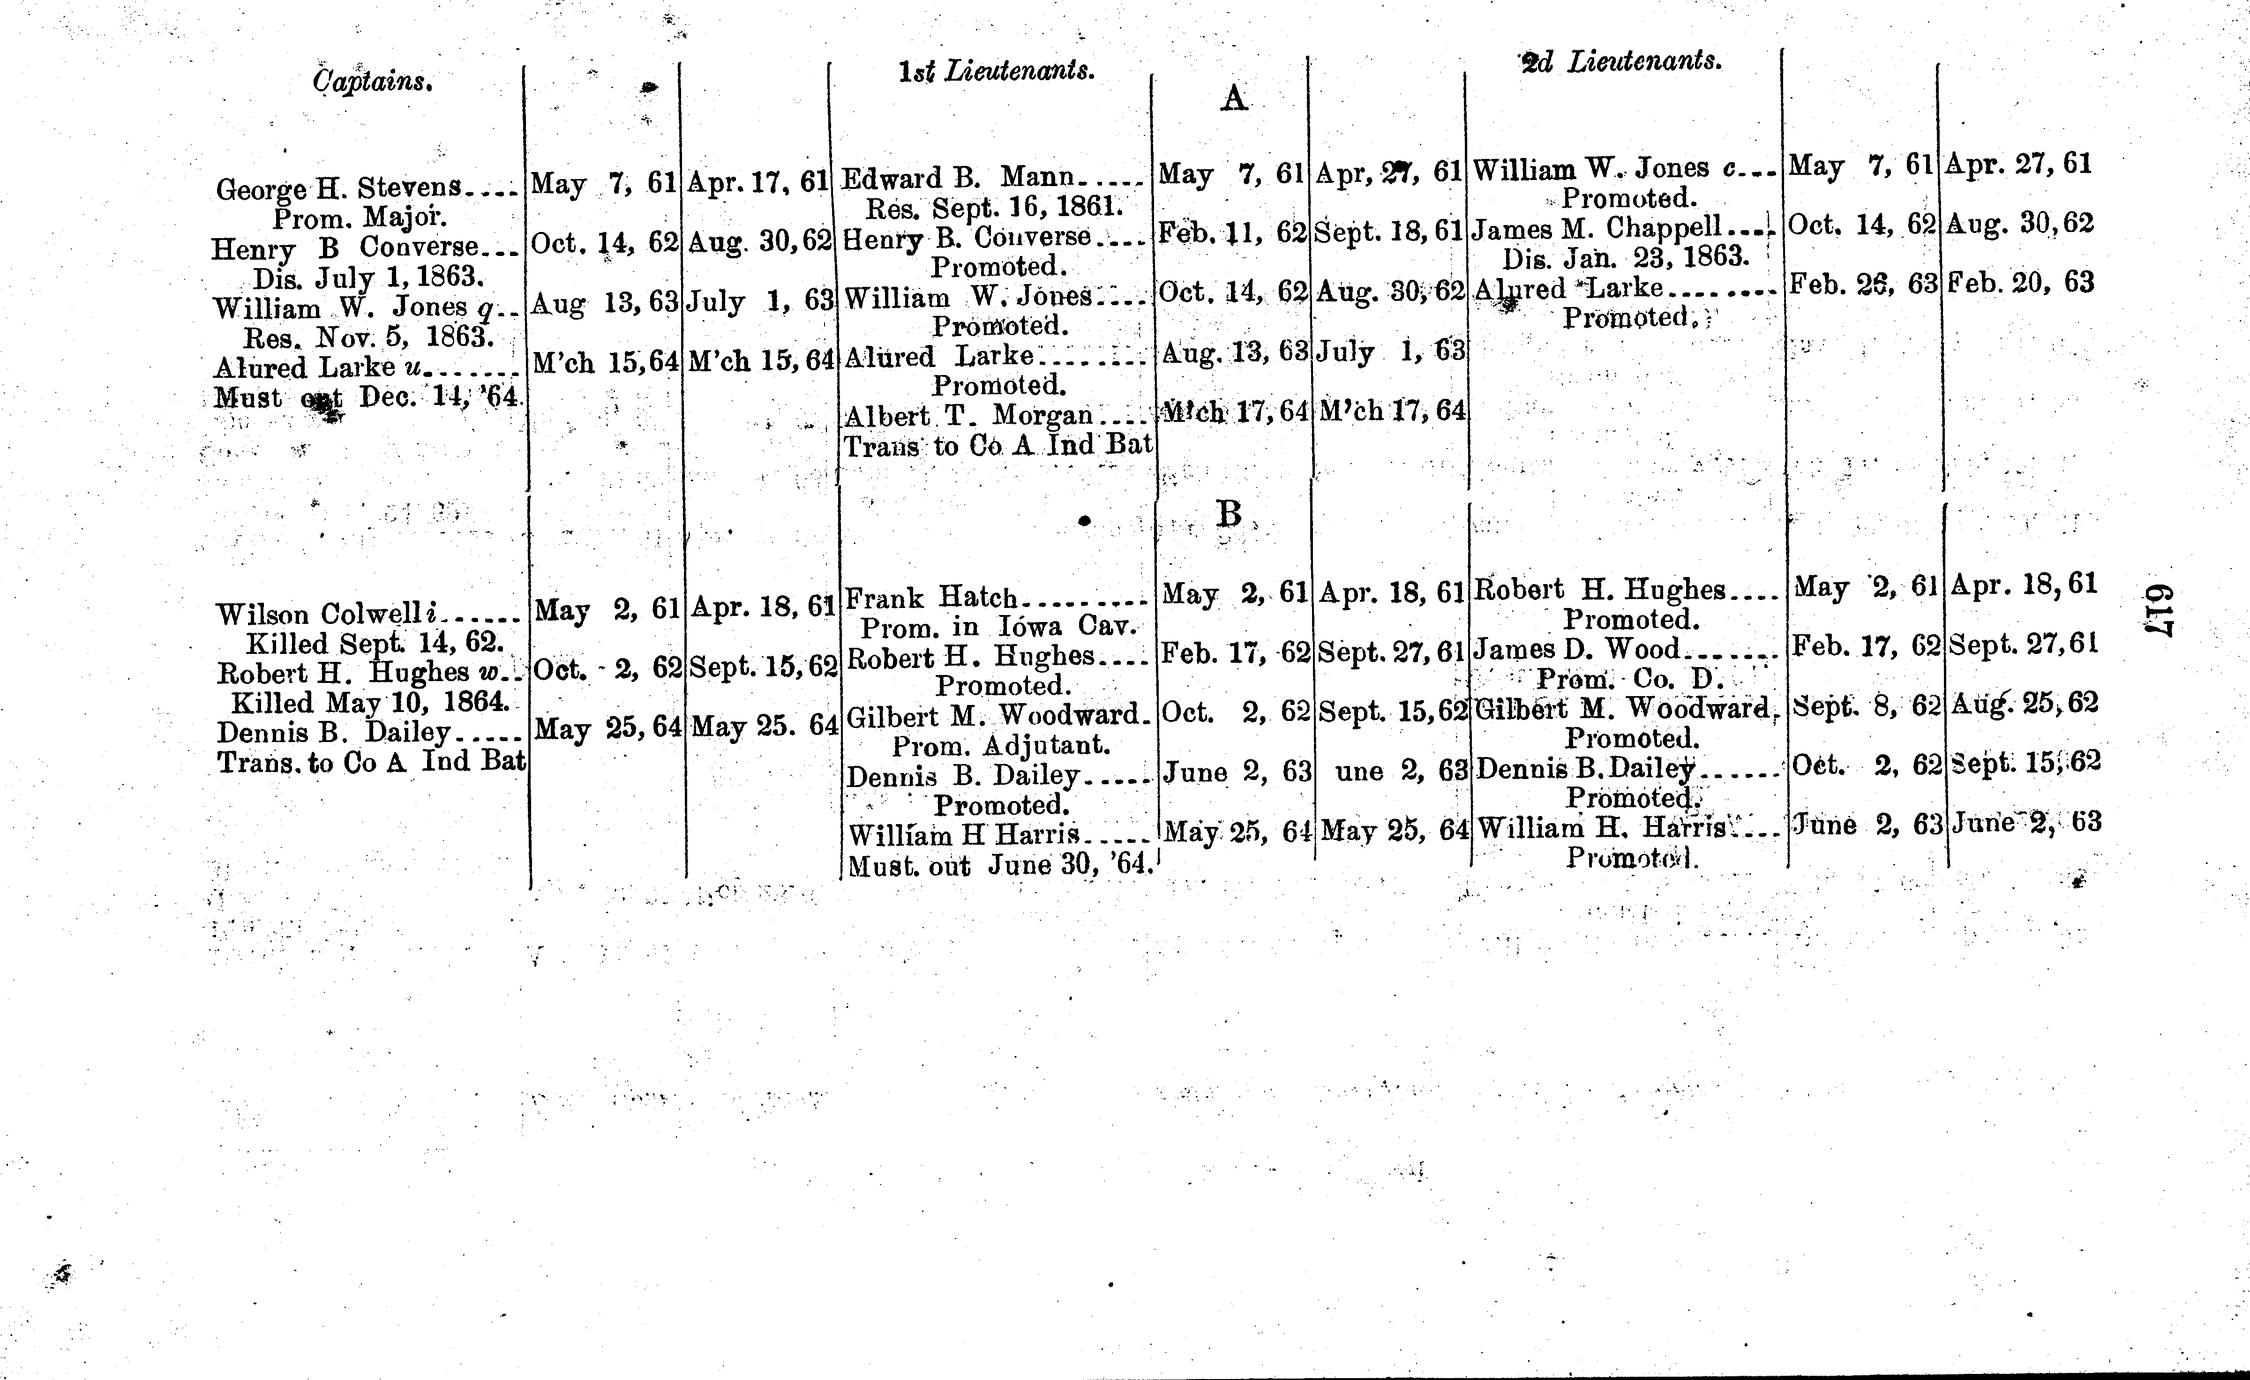 Captains. 1st Lieutenants. 2d Lieutenants.
A
George H. Stevens.... May 7, 61 Apr. 17, 61 Edward B. Mann..... May 7, 61 Apr, 27, 61 William W. Jones c... May 7, 61 Apr. 27, 61
Prom. Major. Res. Sept. 16, 1861. Promoted.
Henry B Converse... Oct. 14, 62 Aug. 30, 62 Henry B. Converse.... Feb. 11, 62 Sept. 18, 61 James M. Chappell.... Oct. 14, 62 Aug. 30, 62
Dis. July 1, 1863. Promoted. Dis. Jan. 23, 1863.
William W. Jones q.. Aug 13, 63 July 1, 63 William W. Jones.... Oct. 14, 62 Aug. 30, 62 Alured Larke........ Feb. 26, 63 Feb. 20, 63
Res. Nov. 5, 1863. Promoted. Promoted.
Alured Larke u....... M'ch 15, 64 M'ch 15, 64 Alured Larke........ Aug. 13, 63 July 1, 63
Must out Dec. 14, '64. Promoted.
Albert T. Morgan.... M'ch 17, 64 M'ch 17, 64
Trans to Co A Ind Bat
B
Wilson Colwell i...... May 2, 61 Apr. 18, 61 Frank Hatch.......... May 2, 61 Apr. 18, 61 Robert H. Hughes.... May 2, 61 Apr. 18, 61
Killed Sept. 14, 62. Prom. in Iowa Cav. Promoted.
Robert H. Hughes w.. Oct. 2, 62 Sept. 15, 62 Robert H. Hughes.... Feb. 17, 62 Sept. 27, 61 James D. Wood....... Feb. 17, 62 Sept. 27, 61
Killed May 10, 1864. Promoted. Prom. Co. D.
Dennis B. Dailey..... May 25, 64 May 25. 64 Gilbert M. Woodward. Oct. 2, 62 Sept. 15, 62 Gilbert M. Woodward. Sept. 8, 62 Aug. 25, 62
Trans. to Co A Ind Bat Prom. Adjutant. Promoted.
Dennis B. Dailey..... June 2, 63 une 2, 63 Dennis B. Dailey...... Oct. 2, 62 Sept. 15, 62
Promoted. Promoted.
William H Harris..... May 25, 64 May 25, 64 William H. Harris.... June 2, 63 June 2, 63
Must. out June 30, '64. Promoted.
617